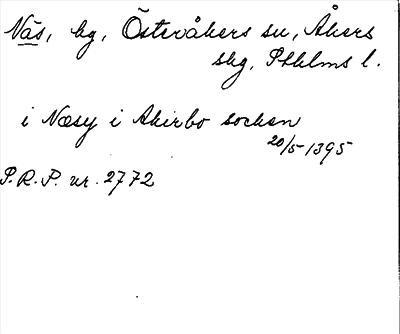 Näs, by, Österåkers sn, Åkers
skg, Sthlms l.
i Næsy i Akirbo sockan
20/5-1395
S.R.P. nr. 2772